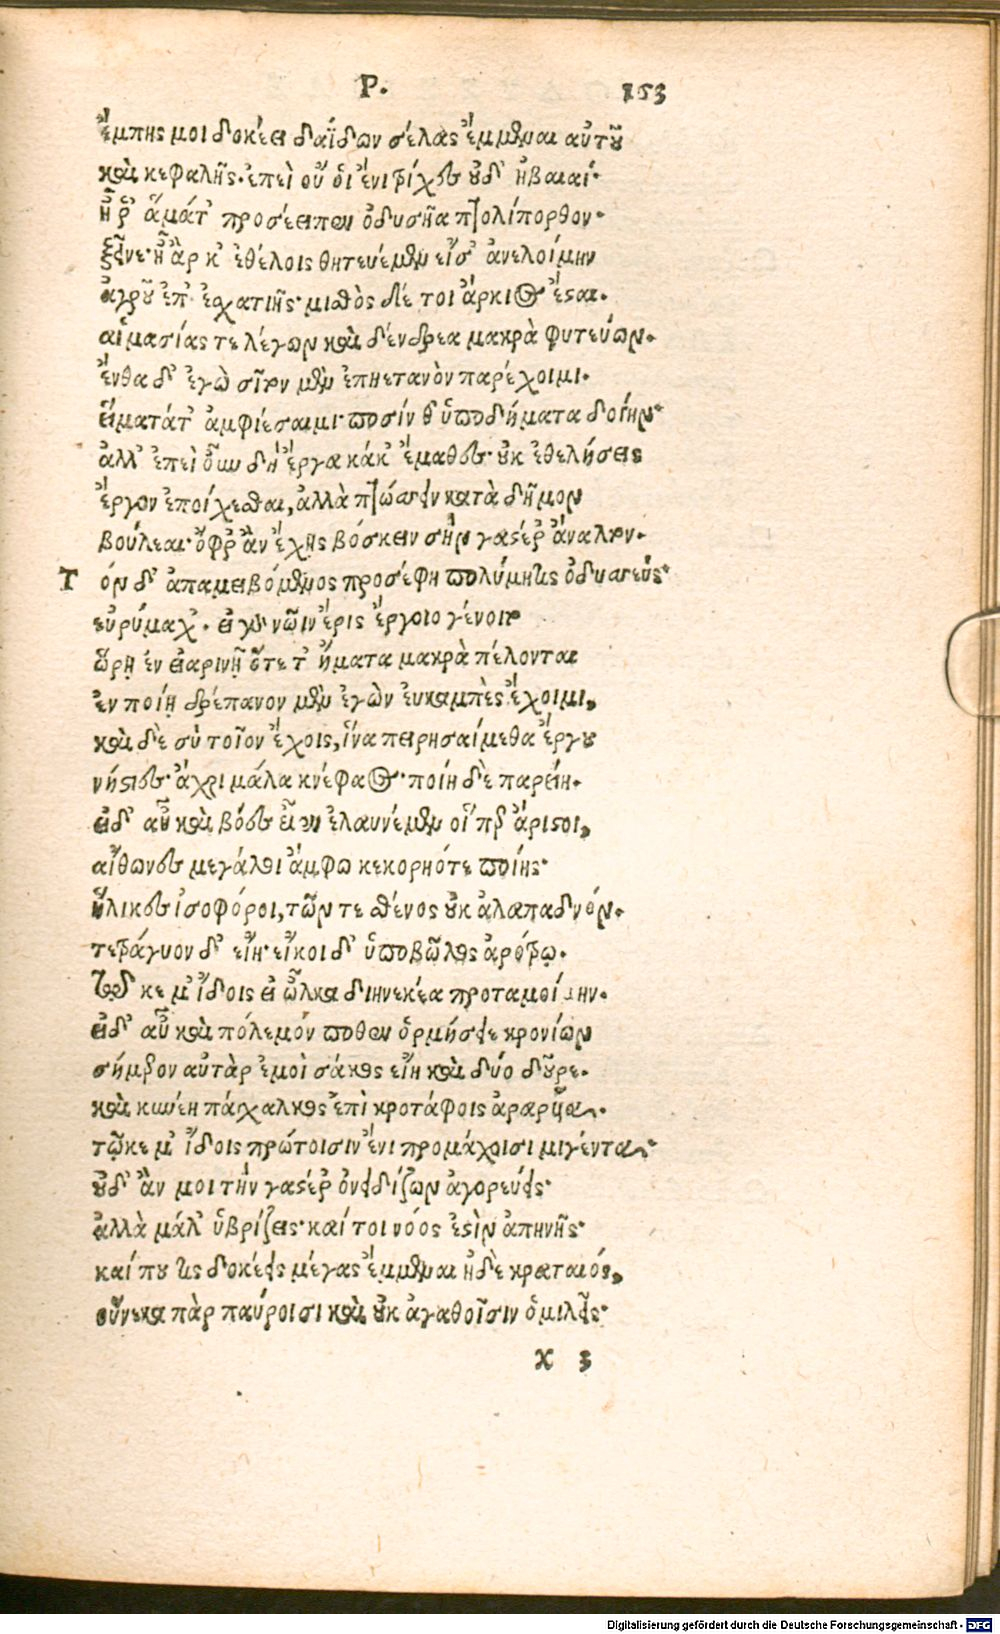 Ρ. 153
ἔμπης μοι δοκέει δαΐδων σέλας ἔμμεναι αὐτοῦ
καὶ κεφαλῆς· ἐπεὶ οὔ οἱ ἔνι τρίχες οὐδ' ἠβαιαί·
ἦ ῥ' ἅμάτ' προσέειπεν ὀδυσῆα πτολίπορθον·
ξεῖνε· ἦ ἂρ κ' ἐθέλοις θητευέμεν εἴσ' ἀνελοίμην
ἀγροῦ ἐπ' ἐσχατιῆς· μισθὸς δέ τοι ἄρκιος ἔσαι·
αἱμασίας τε λέγων καὶ δένδρεα μακρὰ φυτεύων·
ἔνθα δ' ἐγὼ σῖτον μὲν ἐπηετανὸν παρέχοιμι·
εἵματάτ' ἀμφιέσαιμι· ποσίν θ' ὑποδήματα δοίην·
ἀλλ' ἐπεὶ οὖν δὴ ἔργα κάκ' ἔμαθες· οὐκ ἐθελήσεις
ἔργον ἐποίχεσθαι, ἀλλὰ πτώσσειν κατὰ δῆμον
βούλεαι· ὄφρ' ἂν ἔχης βόσκειν σὴν γαστέρ' ἄναλτον·
Τ όν δ' ἀπαμειβόμενος προσέφη πολύμητις ὀδυσσεύς·
εὐρύμαχ'. εἰ γὰρ νῶϊν ἔρις ἔργοιο γένοιτο
ὥρῃ ἐν εἰαρινῇ ὅτε τ' ἤματα μακρὰ πέλονται
ἐν ποίῃ δρέπανον μὲν ἐγὼν ἐυκαμπὲς ἔχοιμι,
καὶ δὲ σὺ τοῖον ἔχοις, ἵνα πειρησαίμεθα ἔργου
νήστιες· ἄχρι μάλα κνέφαος· ποίη δὲ παρείη·
εἰ δ' αὖ καὶ βόες εἶεν ἐλαυνέμεν οἵ περ ἄριστοι,
αἴθωνες μεγάλοι ἄμφω κεκορηότε ποίης·
ἥλικες ἰσοφόροι, τῶν τε σθένος οὐκ ἀλαπαδνόν·
τετράγυον δ' εἴη· εἴκοι δ' ὑπὸ βῶλος ἀρότρῳ·
τῷ κε μ' ἴδοις εἰ ὦλκα διηνεκέα προταμοίμην·
εἰ δ' αὖ καὶ πόλεμόν ποθεν ὁρμήσειε κρονίων
σήμερον αὐτὰρ ἐμοὶ σάκος εἴη καὶ δύο δοῦρε·
καὶ κυνέη πάγχαλκος ἐπὶ κροτάφοις ἀραρυῖα·
τῷ κε μ' ἴδοις πρώτοισιν ἔνι προμάχοισι μιγέντα·
οὐδ' ἄν μοι τὴν γαστέρ' ὀνειδίζων ἀγορεύεις·
ἀλλὰ μάλ' ὑβρίζεις· καί τοι νόος ἐστὶν ἀπηνής·
καί που τις δοκέεις μέγας ἔμμεναι ἠδὲ κραταιός,
οὕνεκα πὰρ παύροισι καὶ οὐκ ἀγαθοῖσιν ὁμιλεῖς·
X 3
Digitalisierung gefördert durch die Deutsche Forschungsgemeinschaft - DFG